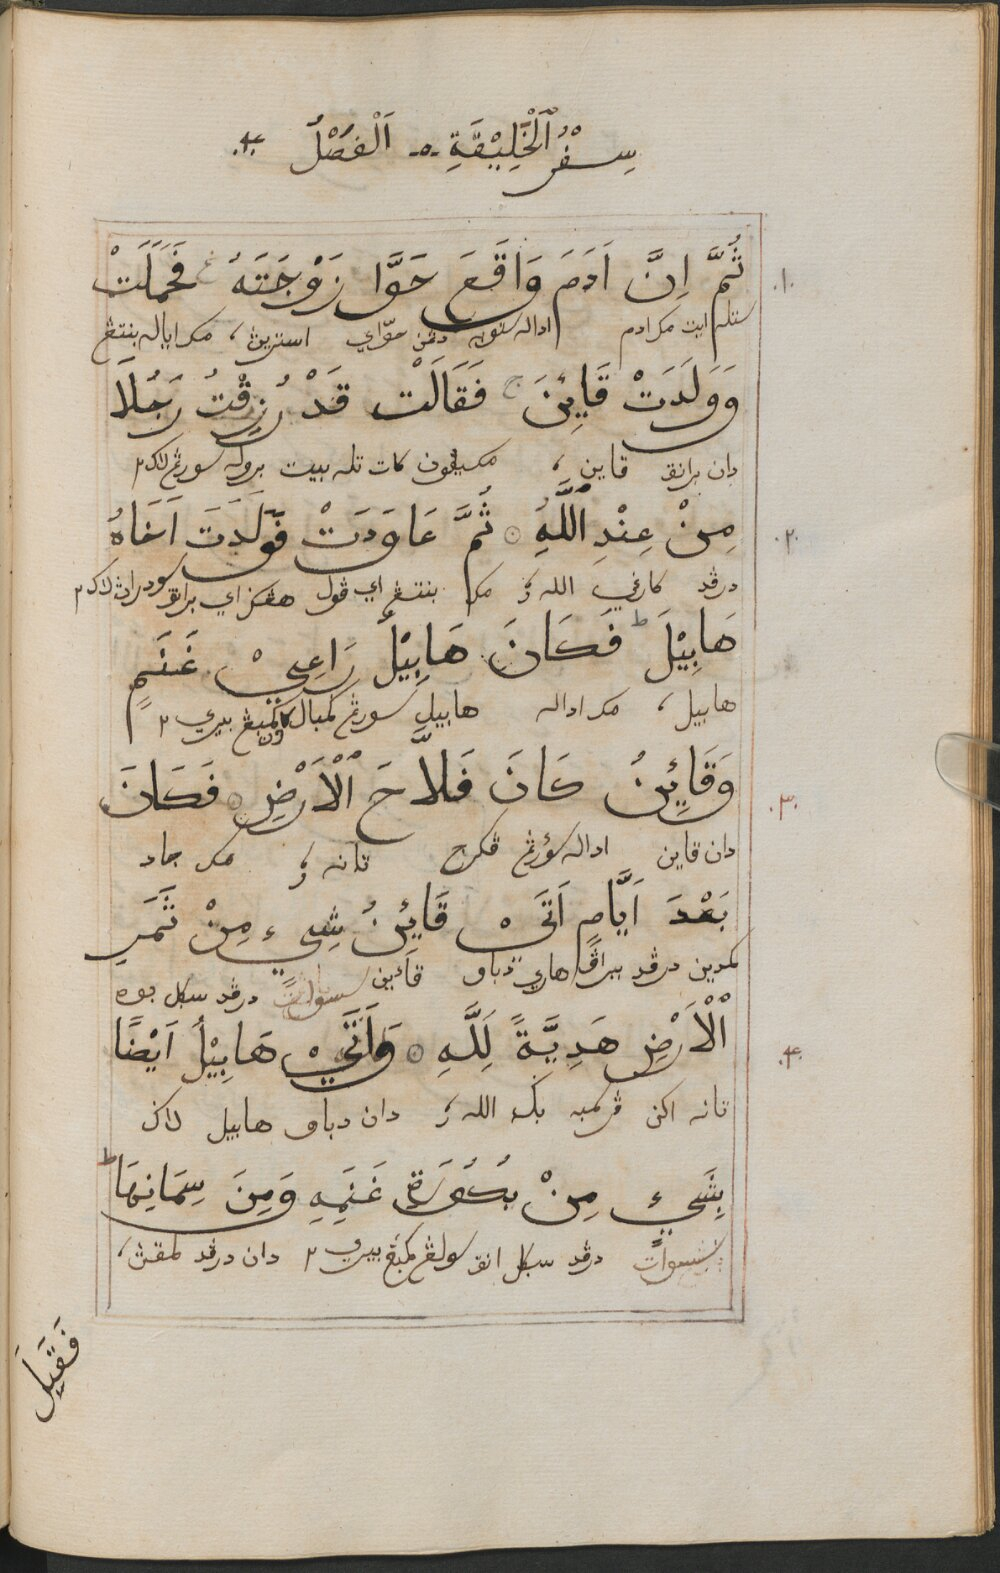 سِفْرُ ٱلْخَلِيْقَةِ ۔ه۔ اَلْفَصْلُ .۴.
ثُمَّ اِنَّ اَدَمَ وَاقَعَ حَوَّا زَوْجَتَهُ فَحَمَلَتْ .۱.
ستله ايت مك ادم اداله ستوبه دڠن حوّاي استرين، مك اياله بنتڠ
وَوَلَدَتْ قَايِنَ ج فَقَالَتْ قَدْ رُزِقْتُ رَجُلًا
دان برانق قاين، كات تله بروله سورڠ لاك٢
مِنْ عِنْدِ اللَّهِ ۝ ثُمَّ عَاوَدَتْ فَوَلَدَتْ اَخَاهُ .۲.
درڤد الله مك بنتڠ اي ڤول هڠڬ اي برانق سودران لاك٢
هَابِيْلَ ط فَكَانَ هَابِيْلُ رَاعِيْ غَنَمٍ
هابيل، مك اداله هابيل سورڠ كمبال كمبڠ بيري ٢
وَقَايِنُ كَانَ فَلَّاحَ ٱلْاَرْضِ ۝ فَكَانَ .۳.
دان قاين اداله سؤرڠ ڤكرج تانه مك جاد
بَعْدَ اَيَّامٍ اَتَىْ قَايِنُ بِشَيْءٍ مِنْ ثَمَرِ
كمدين درڤد بيراڤ هاري دباو قاين سسواتت درڤد سكل بوه
ٱلْاَرْضِ هَدِيَّةً لِلَّهِ ۝ وَاَتَىْ هَابِيْلُ اَيْضًا .۴.
تانه اكن ڤرسمبه بڬ الله دان دباو هابيل لاڬ
بِشَيْءٍ مِنْ بُكُوْرَةِ غَنَمِهِ وَمِنَ سِمَانِهَا ط
سسوات درڤد سكل انق سولڠ كمبڠ بيري ٢ دان درڤد لمقڽ،
فَقَبِلَ